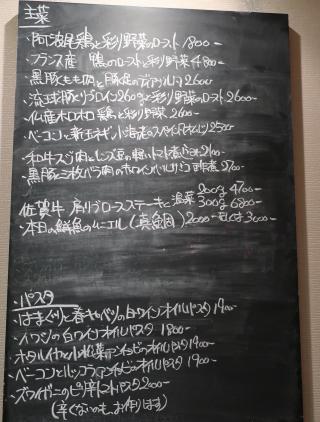 主菜
・阿波尾鶏と彩り野菜のロースト 1800-
・フランス産 鴨のローストと彩り野菜 4800-
・黒豚もも肉と豚足の 2600-
・琉球豚リブロイン260gと彩り野菜のロースト 2600-
・仏産ホロホロ鶏と彩り野菜 2600-
・ベーコンと新玉ギ 2500-
・和牛スジ肉とレンズ豆の軽いトマト煮込み 2100-
・黒豚と三枚バラ肉の白ワイン 煮 2700-
佐賀牛 肩リブロースステーキと温菜 200g 4700- 300g 6800-
・本日の鮮魚のムニエル(真鯛) 2000- 3000-
・パスタ
・はまぐりと春キャベツの白ワインオイルパスタ 1900-
・イワシの白ワインオイルパスタ 1800-
・ホタルイカと小松菜のアンチョビオイルパスタ 1900-
・ベーコンとルッコラのアンチョビのオイルパスタ 1900-
・ズワイガニのピリ辛トマトパスタ 2000-
(辛くないのも、お作りします)